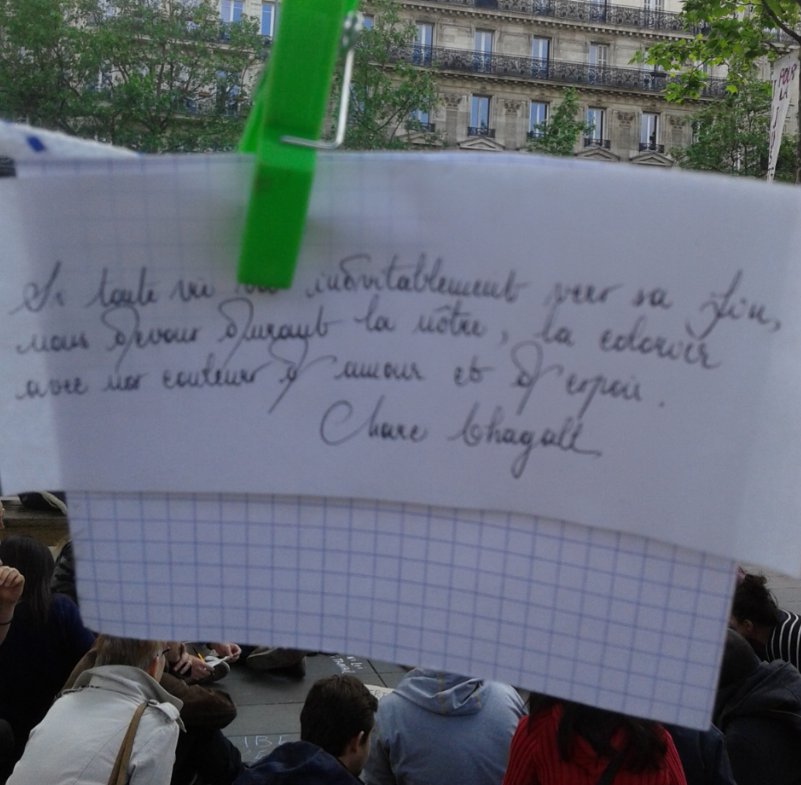 Si toute vie va inévitablement vers sa fin,
nous devons durant la nôtre, la colorier
avec nos couleurs d'amour et d'espoir.
Marc Chagall